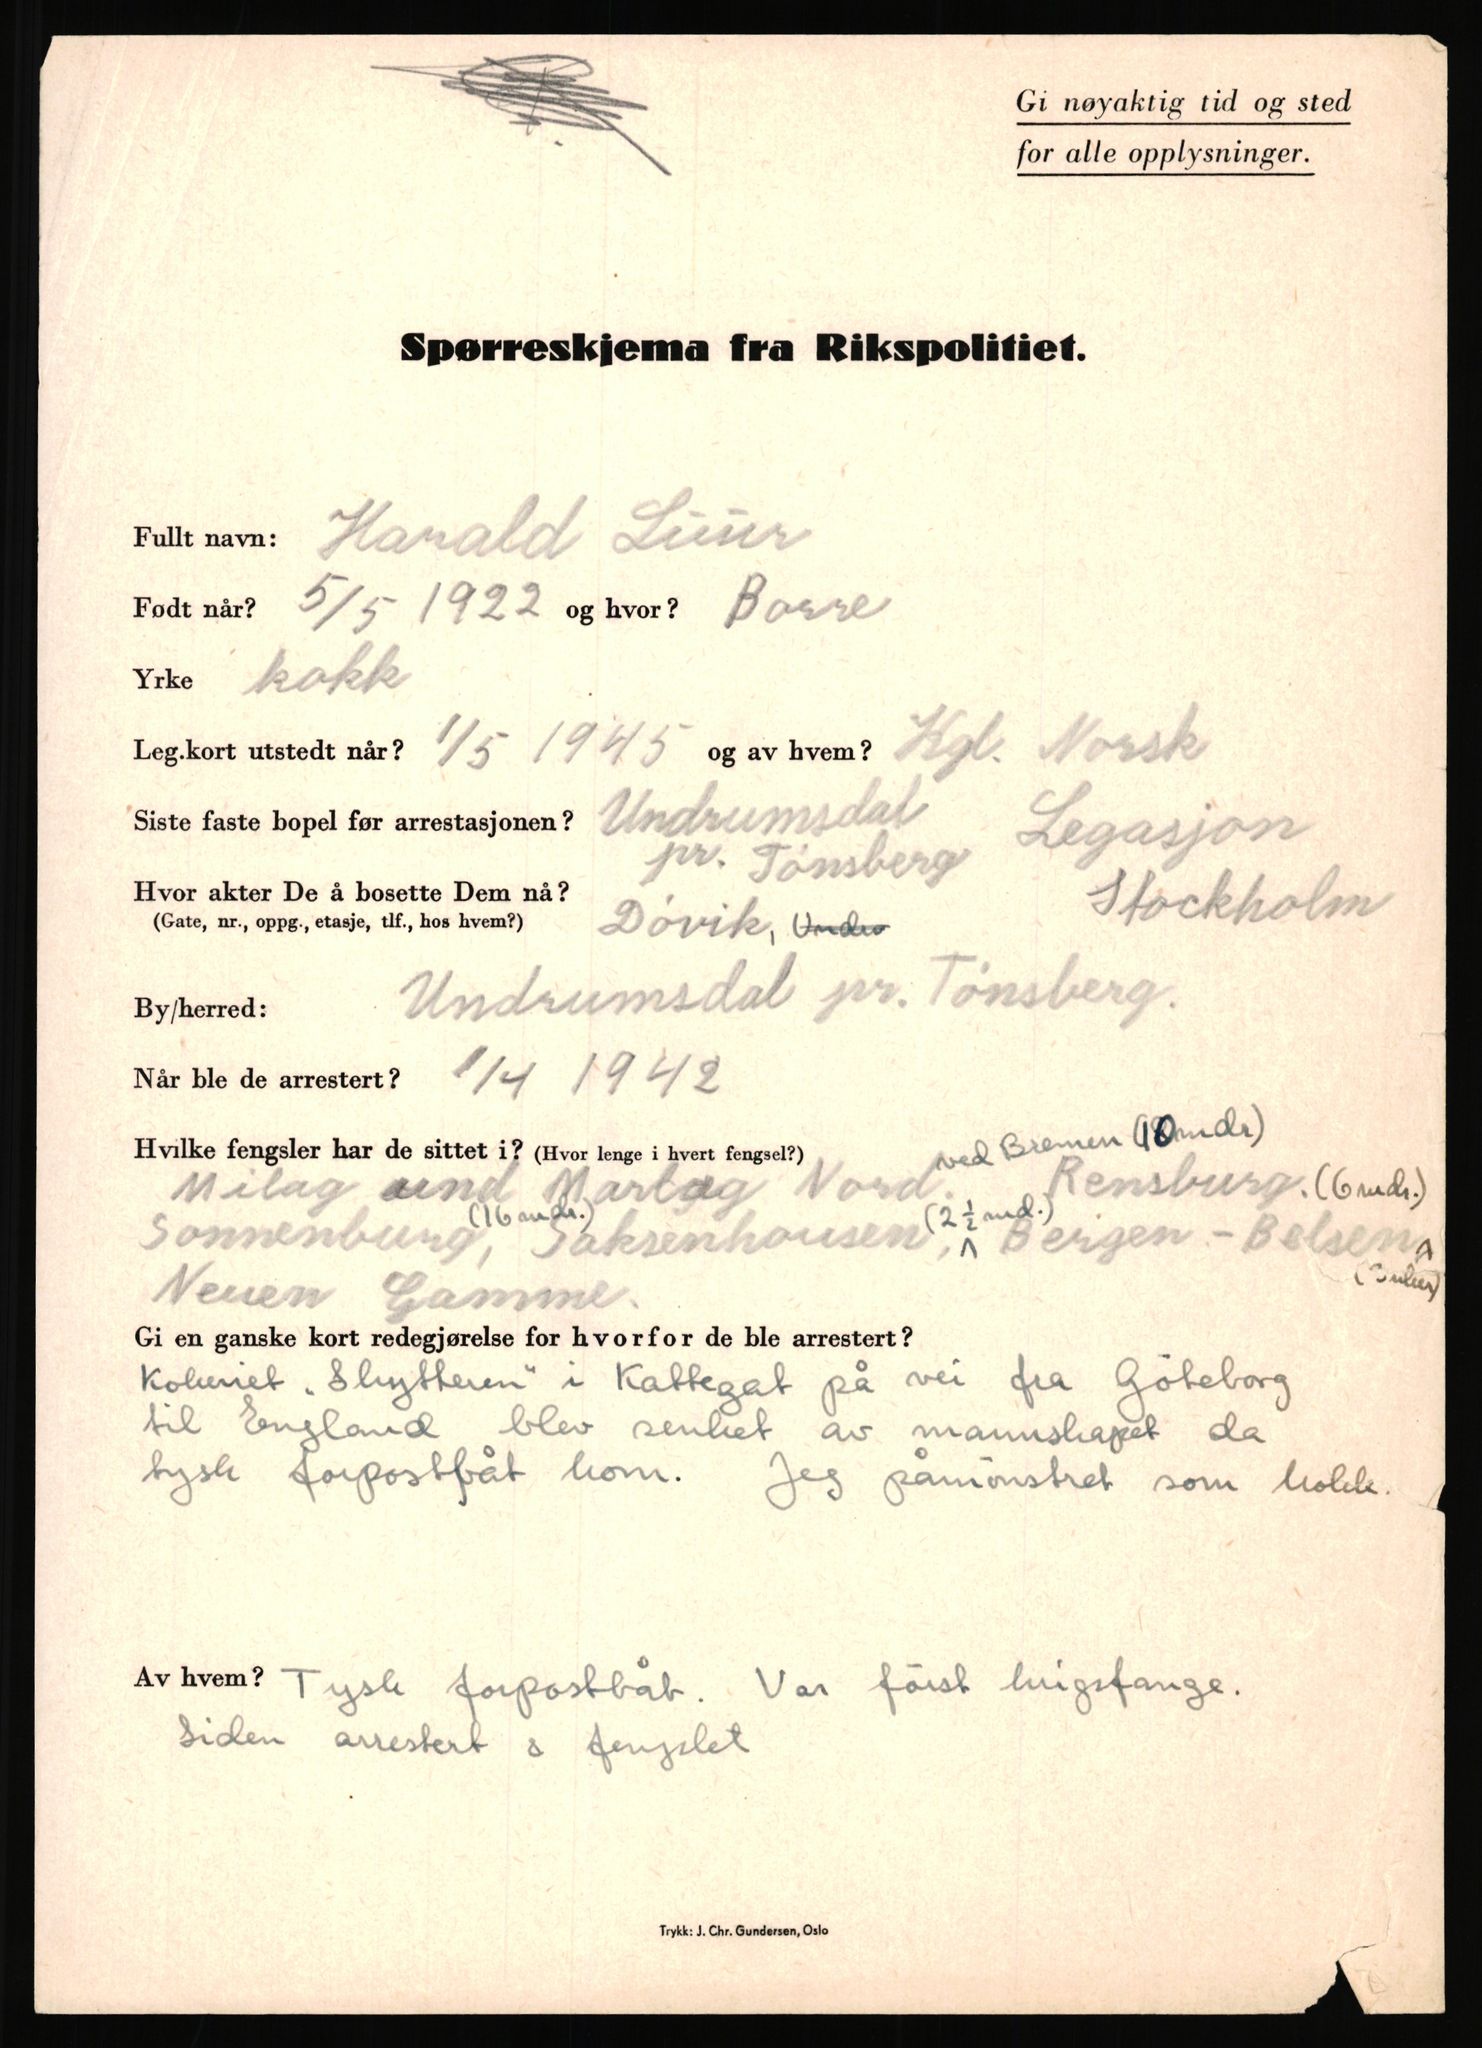 Gi nøyaktig tid og sted
for alle opplysninger.
Spørreskjema fra Rikspolitiet.
Fullt navn: Harald Luur
Født når? 5/5 1922 og hvor? Borre
Yrke kokk
Leg.kort utstedt når? 1/5 1945 og av hvem? Kgl. Norsk
Siste faste bopel før arrestasjonen? Undrumsdal Legasjon
pr. Tønsberg
Hvor akter De å bosette Dem nå? Stockholm
(Gate, nr., oppg., etasje, tlf., hos hvem?) Dövik, Undru
By/herred: Undrumsdal pr. Tønsberg.
Når ble de arrestert? 1/4 1942
Hvilke fengsler har de sittet i? (Hvor lenge i hvert fengsel?) ved Bremen (10 mdr)
Milag und Marlag Nord. Rensburg. (6 mdr.)
(16 mdr.) (2 1/2 md.)
Sonnenburg, Saksenhausen, Bergen - Belsen
(3 uker)
Neuen Gamme.
Gi en ganske kort redegjørelse for hvorfor de ble arrestert?
Kokeriet „Skytteren" i Kattegat på vei fra Göteborg
til England blev senket av mannskapet da
tysk forpostbåt kom. Jeg påmönstret som kokk.
Av hvem? Tysk forpostbåt. Var först krigsfange.
Siden arrestert & fengslet
Trykk: J. Chr. Gundersen, Oslo